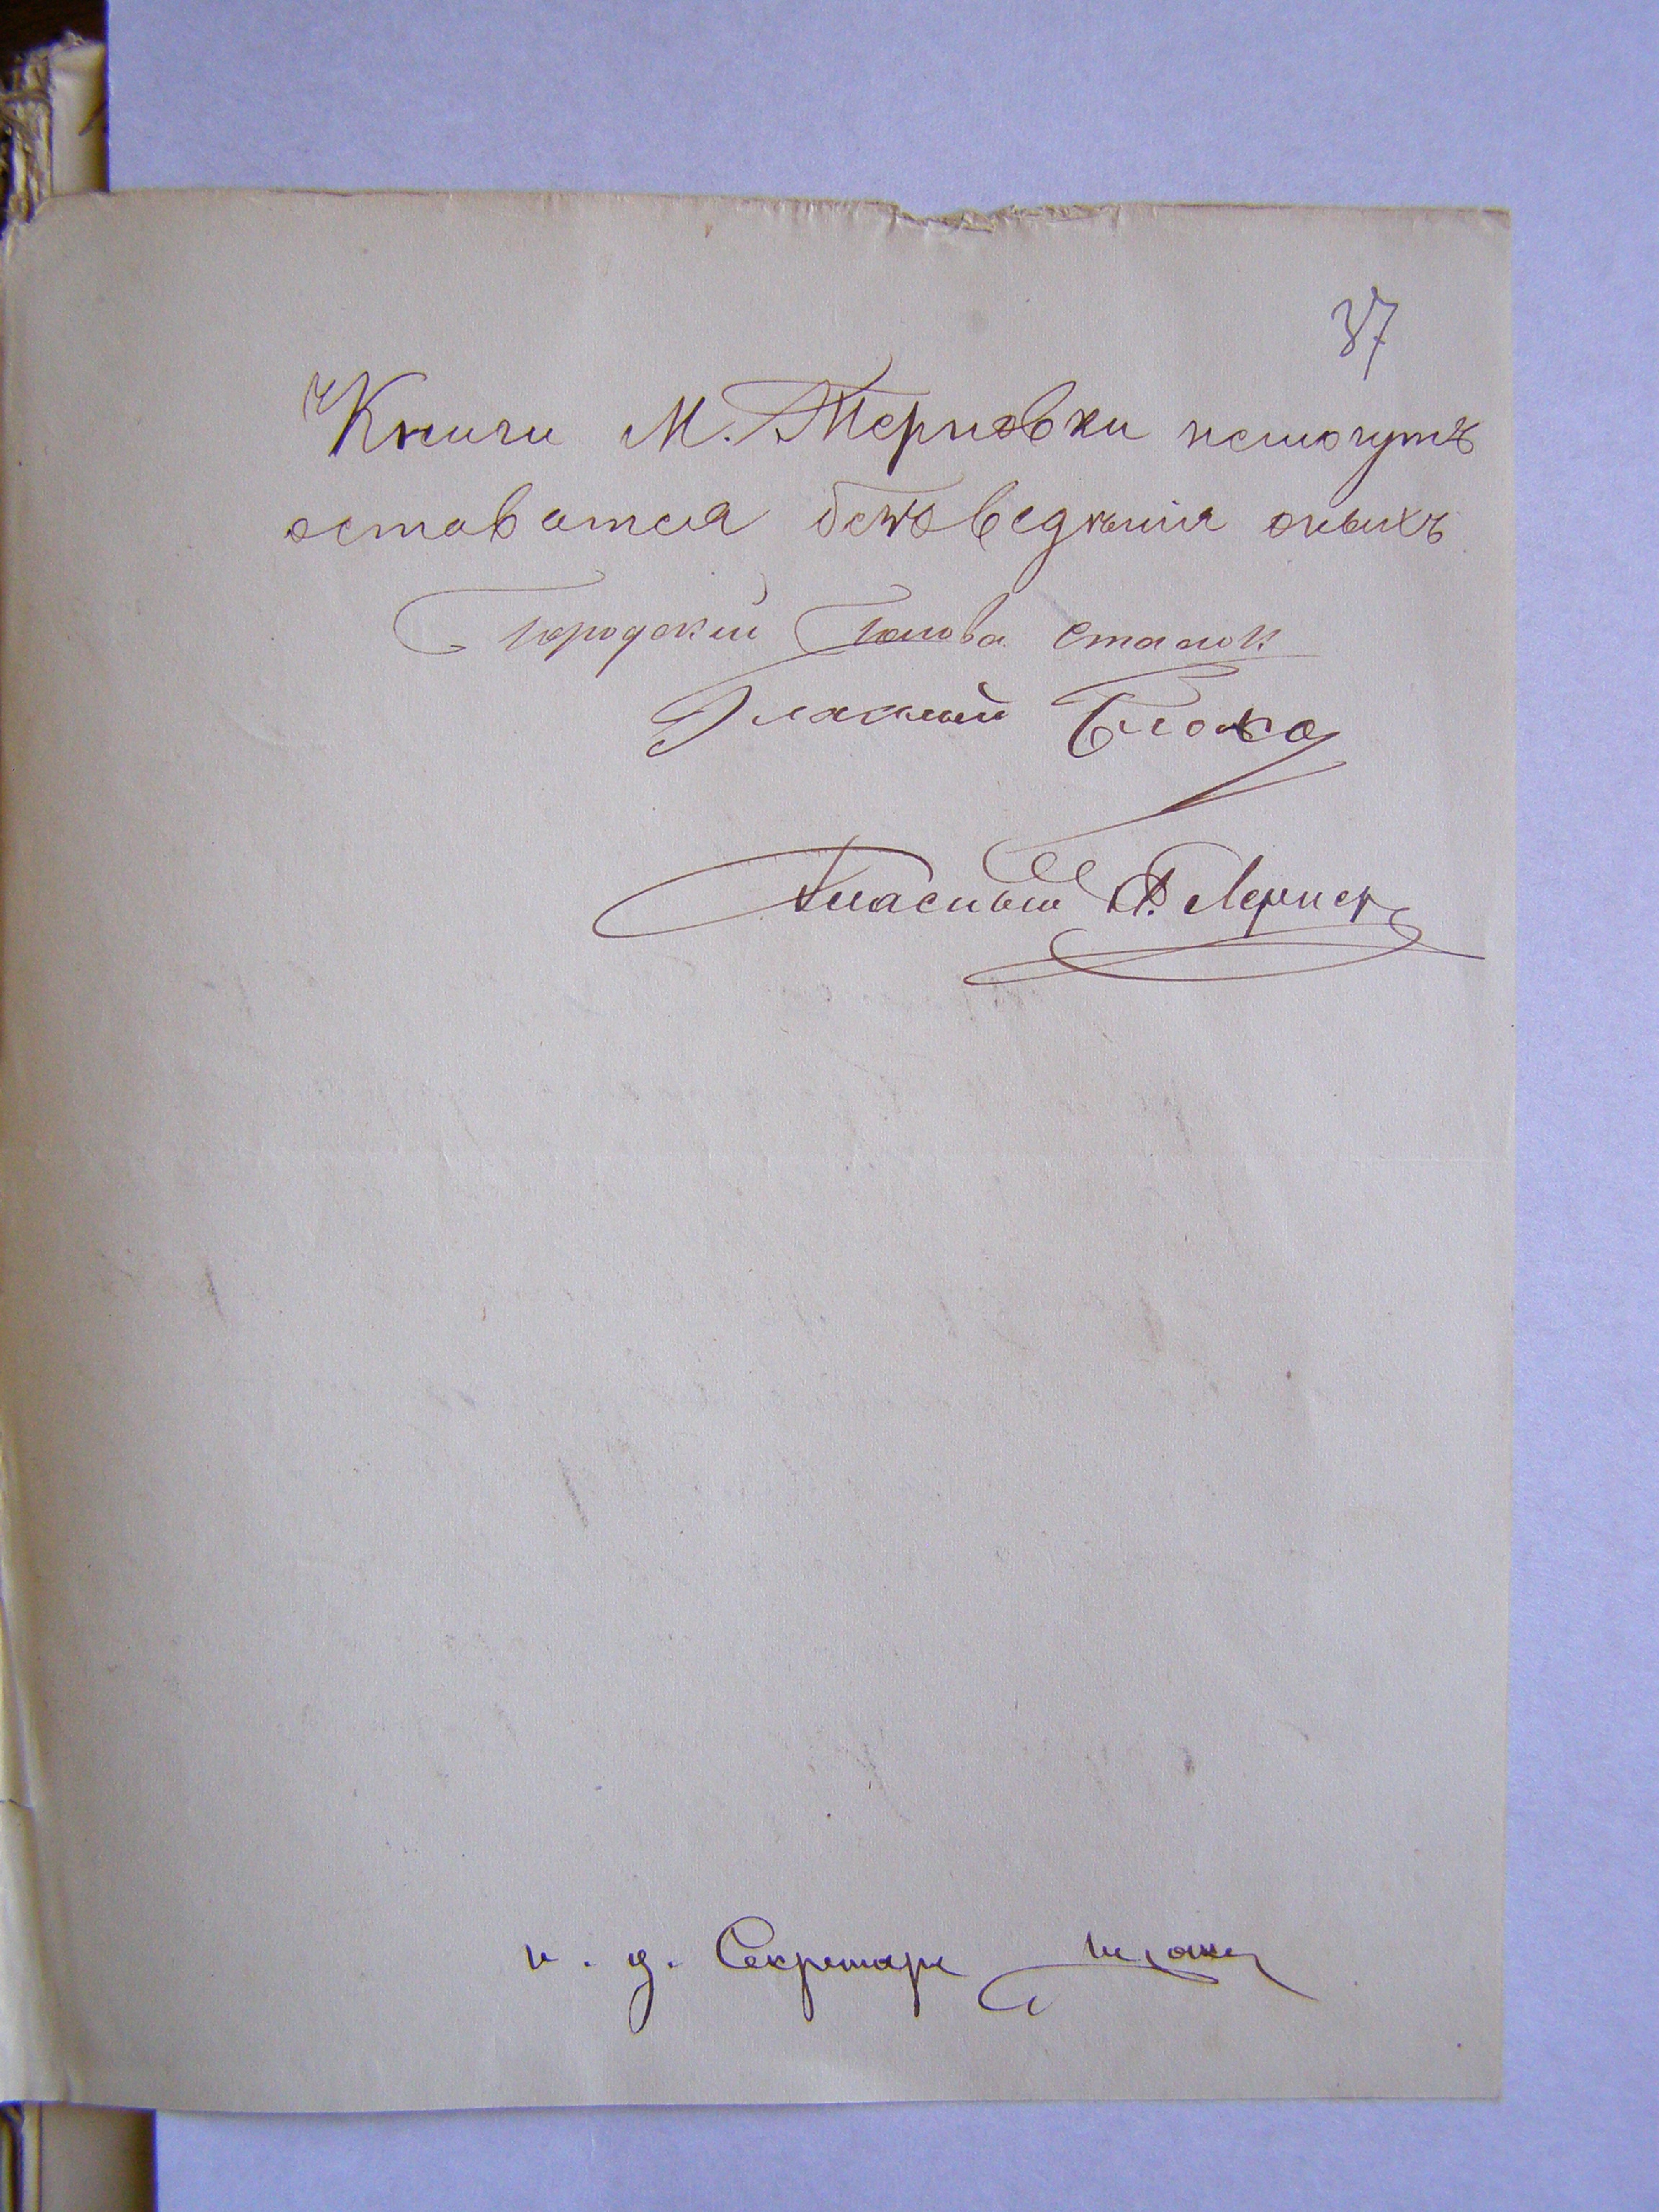 37
Книги М. Терновки немогутъ
оставатся безъ ведѣнія оныхъ
Городский Голова Сталюк
Гласный
Гласный Ф. Лернер
и. д. Секретаря